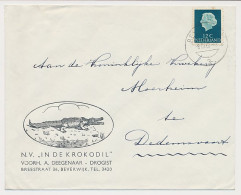 12c
NEDERLAND
Aan de Koninklijke Kweekerij
Moerheim
te
Dedemsvaart
N.V. „IN DE KROKODIL"
VOORH. A. DEEGENAAR - DROGIST
BREESTRAAT 36, BEVERWIJK, TEL. 3420